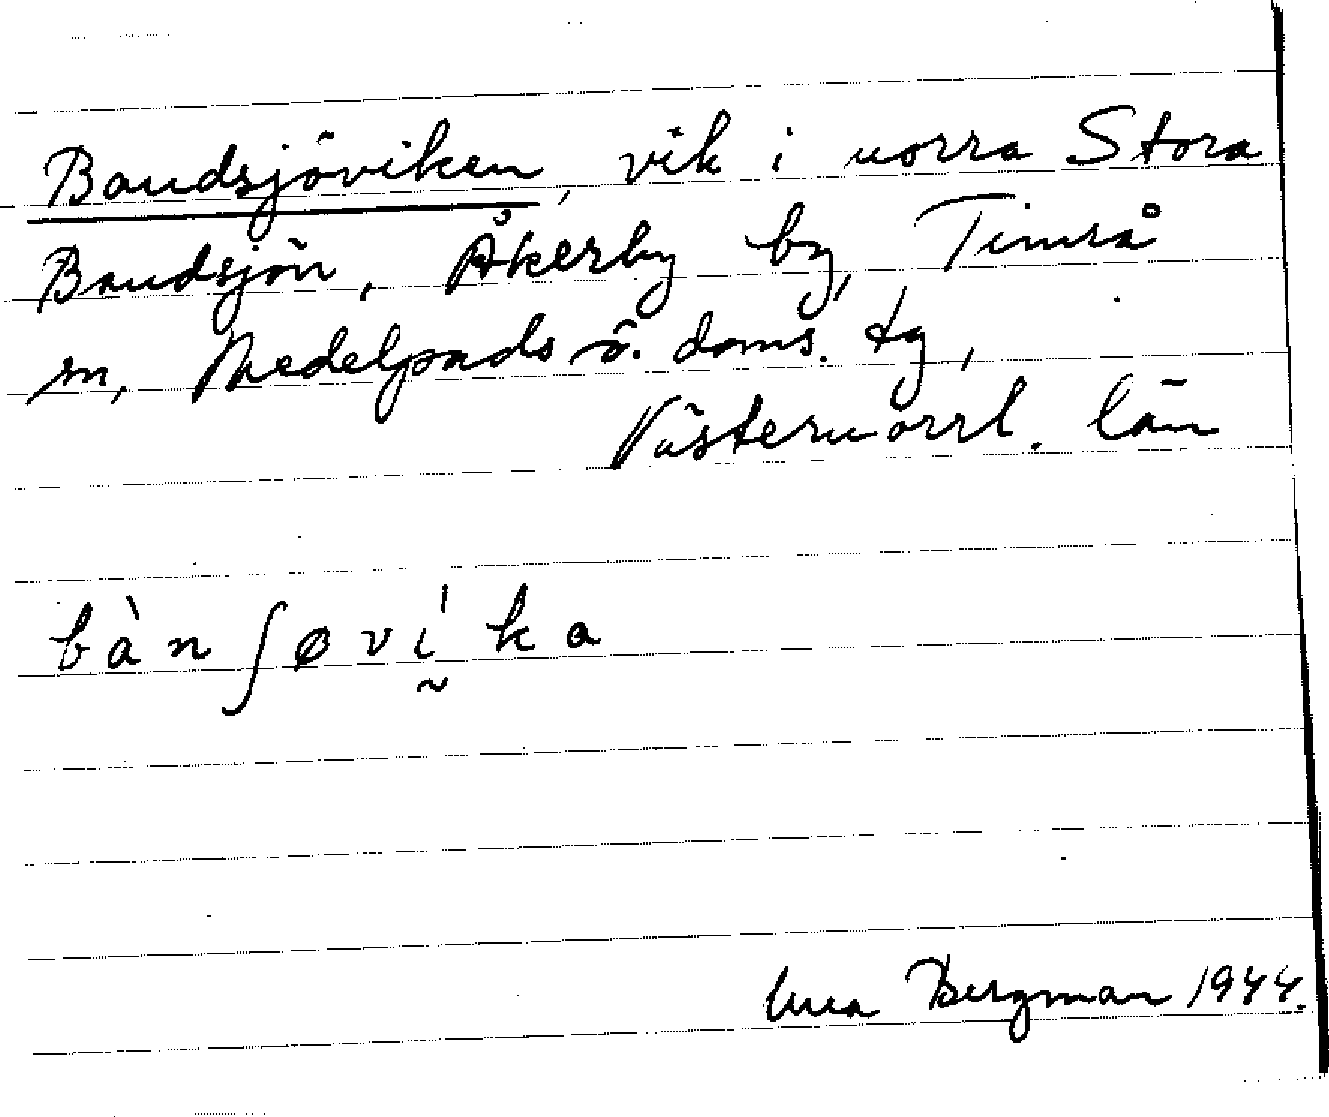 Bandsjöviken, vik i norra Stora
Bandsjön, Åkerby by, Timrå
sn, Medelpads ö. doms. tg,
Västernorrl. län
bàn ʃøvḭ́ka
Bergman 1944.